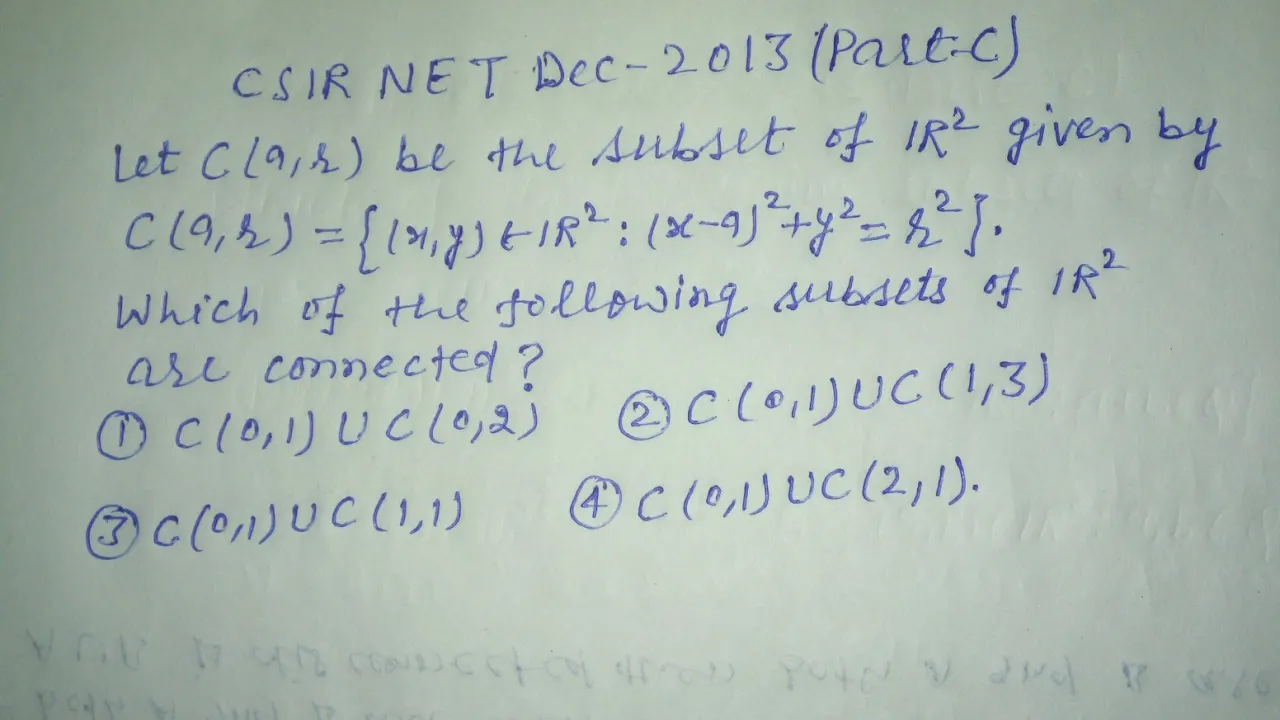 CSIR NET Dec-2013 (Part-C)
Let C(a,r) be the subset of IR² given by
C(a,r) = {(x,y) ∈ IR² : (x-a)² + y² = r²}.
Which of the following subsets of IR²
are connected?
① C(0,1) U C(0,2) ② C(0,1) U C(1,3)
③ C(0,1) U C(1,1) ④ C(0,1) U C(2,1).